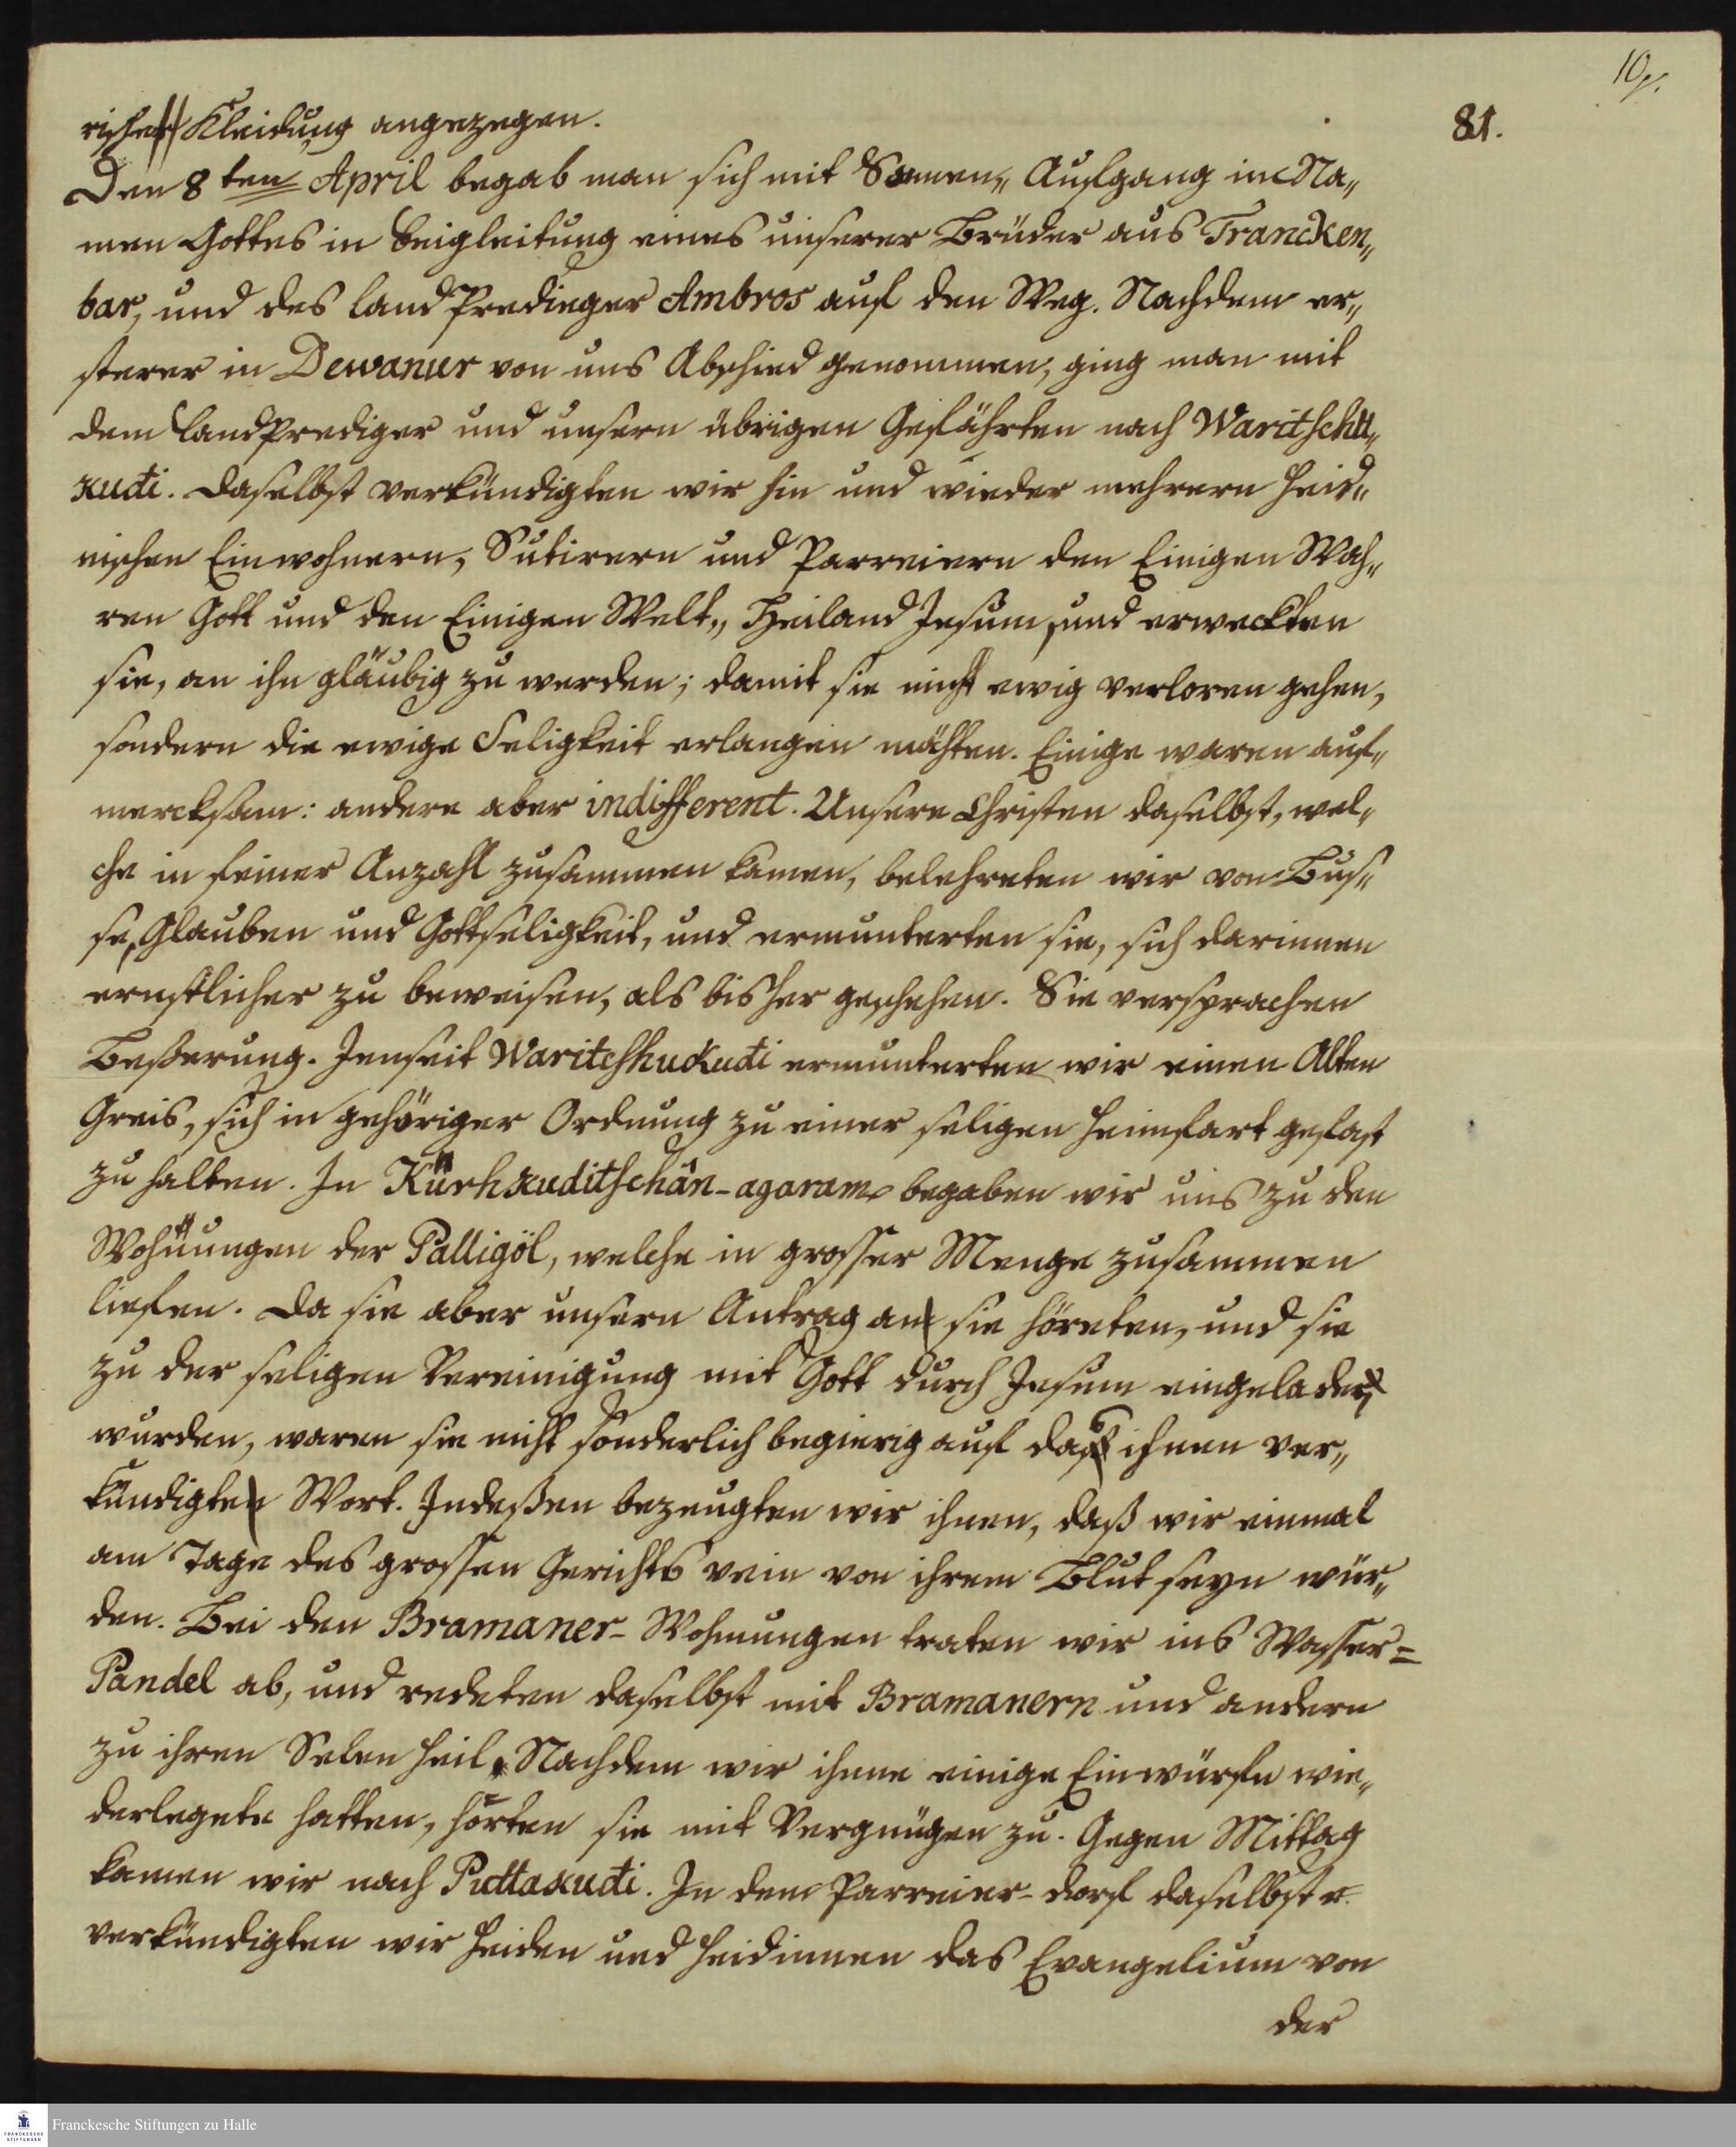 10,/.
81.
rischer Kleidung angezogen.
Den 8ten April begab man sich mit Sonnen„ Aufgang im Na„
men Gottes in beigleitung eines unserer Brüder aus Trancken„
bar, und des land Predieger Ambros auf den Weg. Nachdem er„
sterer in Dewanur von uns Abschied genommen, ging man mit
dem landPrediger und unsern übrigen Gefährten nach Waritschu„
kudi. Daselbst verkündigten wir hin und wieder mehrern heid„
nischen Einwohnern, Sutirern und Parreiern den Einigen Wah„
ren Gott und den Einigen Welt„ Heiland Jesum, und erweckten
sie, an ihn gläubig zu werden; damit sie nicht ewig verloren gehen,
sondern die ewige Seligkeit erlangen möchten. Einige waren auf„
mercksam: andere aber indifferent. Unsere Christen daselbst, wel„
che in feiner Anzahl zusammen kamen, belehreten wir von Bus„
se, Glauben und Gottseligkeit, und ermunterten sie, sich darinnen
ernstlicher zu beweisen, als bisher geschehen. Sie versprachen
Beßerung. Jenseit Waritchhukudi ermunterten wir einen Alten
Greis, sich in gehöriger Ordnung zu einer seligen Heimfart gefast
zu halten. In Kürhkuditschân-agaram begaben wir uns zu den
Wohnungen der Palligöl, welche in grosser Menge zusammen
liefen. Da sie aber unsern Antrag an sie höreten, und sie
zu der seligen Vereinigung mit Gott durch Jesum eingeladen
wurden, waren sie nicht sonderlich begierig auf das ihnen ver„
kündigte Wort. Indeßen bezeugten wir ihnen, daß wir einmal
am Tage des grossen Gerichts rein von ihrem Blut seyn wür„
den. Bei den Bramaner- Wohnungen traten wir ins Wasser=
Pandel ab, und redeten daselbst mit Bramanern und andern
zu ihren Selen Heil. Nachdem wir ihnne einige Einwürfe wie„
derlegete hatten, hörten sie mit Vergnügen zu. Gegen Mittag
kamen wir nach Puttakudi. In dem Parreier-dorf daselbst
verkündigten wir Heiden und Heidinnen das Evangelium von
der
Franckesche Stiftungen zu Halle